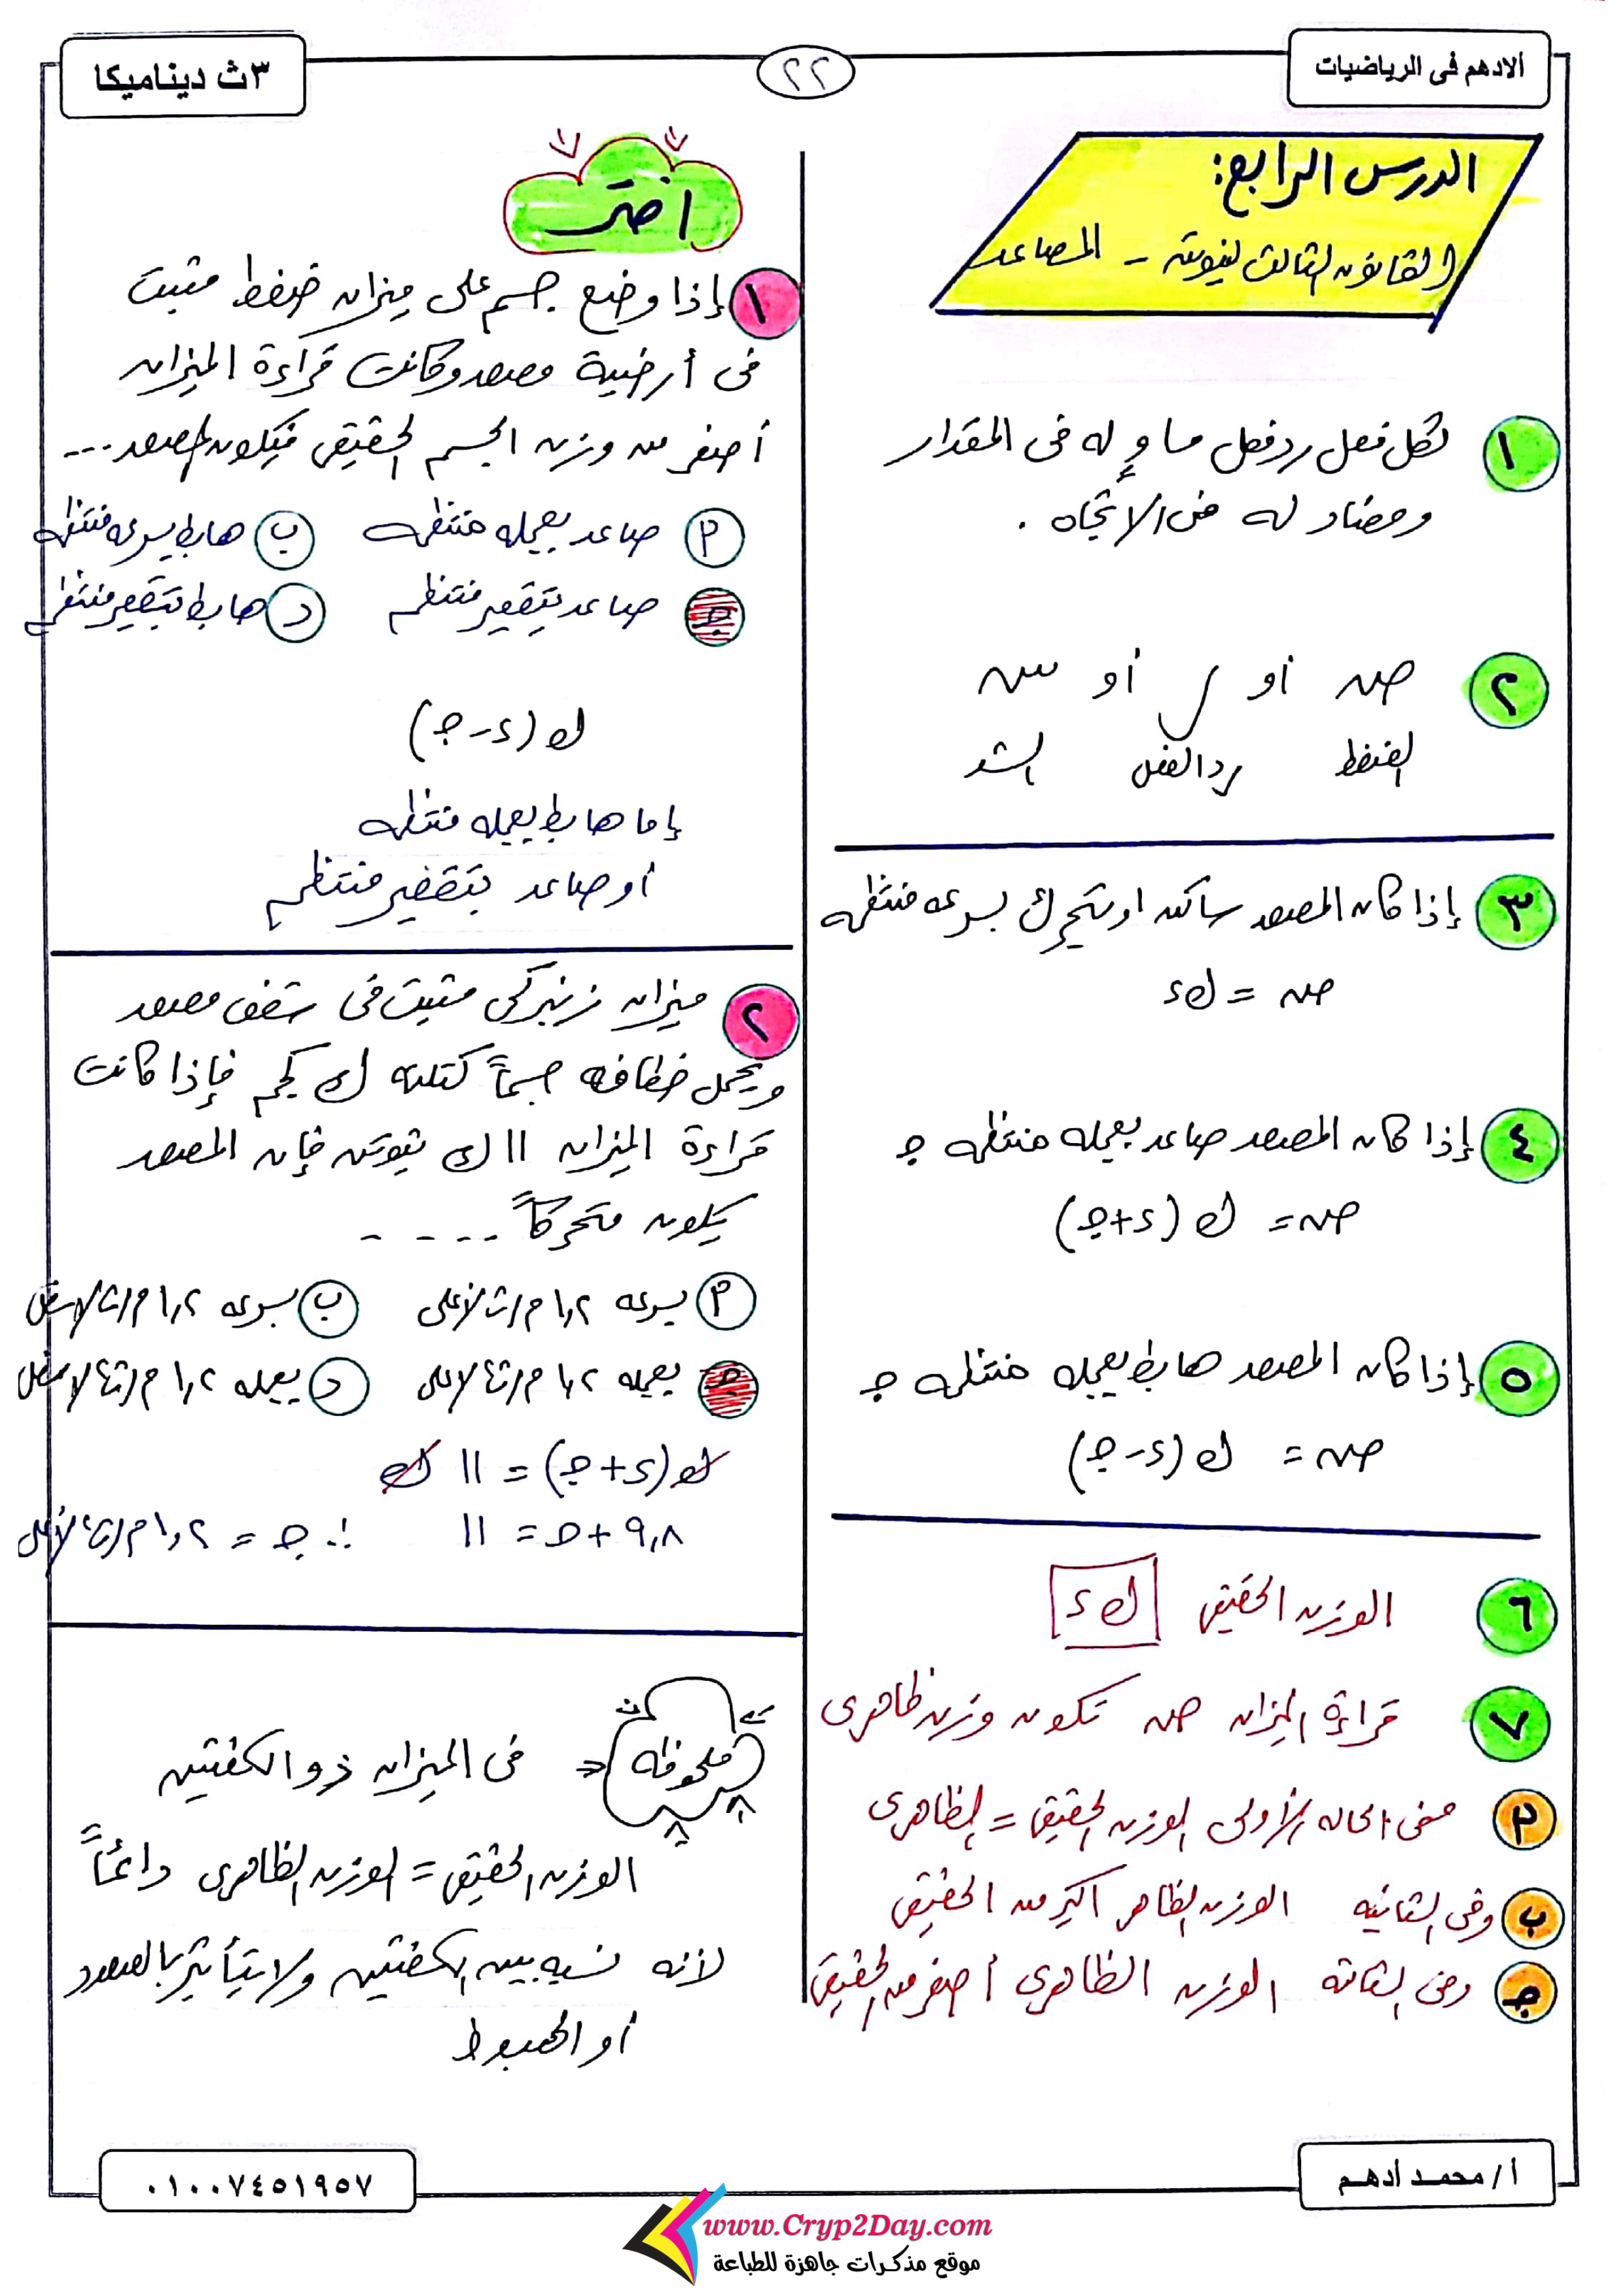 الادهم فى الرياضيات
٢٢
٣ث ديناميكا
الدرس الرابع:
القانون الثالث لنيوتن - المصاعد
١ لكل فعل رد فعل مساوٍ له فى المقدار
ومضاد له فى الإتجاه .
٢ ض أو ر أو ش
الضغط رد الفعل الشد
٣ إذا كان المصعد ساكن او يتحرك بسرعه منتظمه
ض = ك ء
٤ إذا كان المصعد صاعد بعجله منتظمه جـ
ض = ك (ء + جـ)
٥ إذا كان المصعد هابط بعجله منتظمه جـ
ض = ك (ء - جـ)
٦ الوزن الحقيقى ك ء
٧ قراءة الميزان ض تكون وزن ظاهرى
م ففى الحاله الأولى الوزن الحقيقى = الظاهرى
ب وفى الثانيه الوزن الظاهر اكبر من الحقيقى
جـ وفى الثالثه الوزن الظاهرى أصغر من الحقيقى
اختر
١ إذا وضع جسم على ميزان ضغط مثبت
فى أرضية مصعد وكانت قراءة الميزان
أصغر من وزن الجسم الحقيقى فيكون المصعد ...
م صاعد بعجله منتظمه ب هابط بسرعه منتظمه
جـ صاعد بتقصير منتظم د هابط بتقصير منتظم
ك (ء - جـ)
إما هابط بعجله منتظمه
أو صاعد بتقصير منتظم
٢ ميزان زنبركى مثبت فى سقف مصعد
ويحمل خطافه جسماً كتلته ك كجم فإذا كانت
قراءة الميزان ١١ ك نيوتن فإن المصعد
يكون متحركاً - - - - -
م بسرعه ١,٢ م/ث لأعلى ب بسرعه ١,٢ م/ث لاسفل
جـ بعجله ١,٢ م/ث٢ لاعلى د بعجله ١,٢ م/ث٢ لاسفل
ك (ء + جـ) = ١١ ك
٩,٨ + جـ = ١١ ∴ جـ = ١,٢ م/ث٢ لأعلى
ملحوظه فى الميزان ذو الكفتين
الوزن الحقيقى = الوزن الظاهرى دائماً
لأنه نسبه بين الكفتين ولا يتأثر بالصعود
أو الهبوط
أ/ محمـد أدهـم
٠١٠٠٧٤٥١٩٥٧
www.Cryp2Day.com
موقع مذكرات جاهزة للطباعة